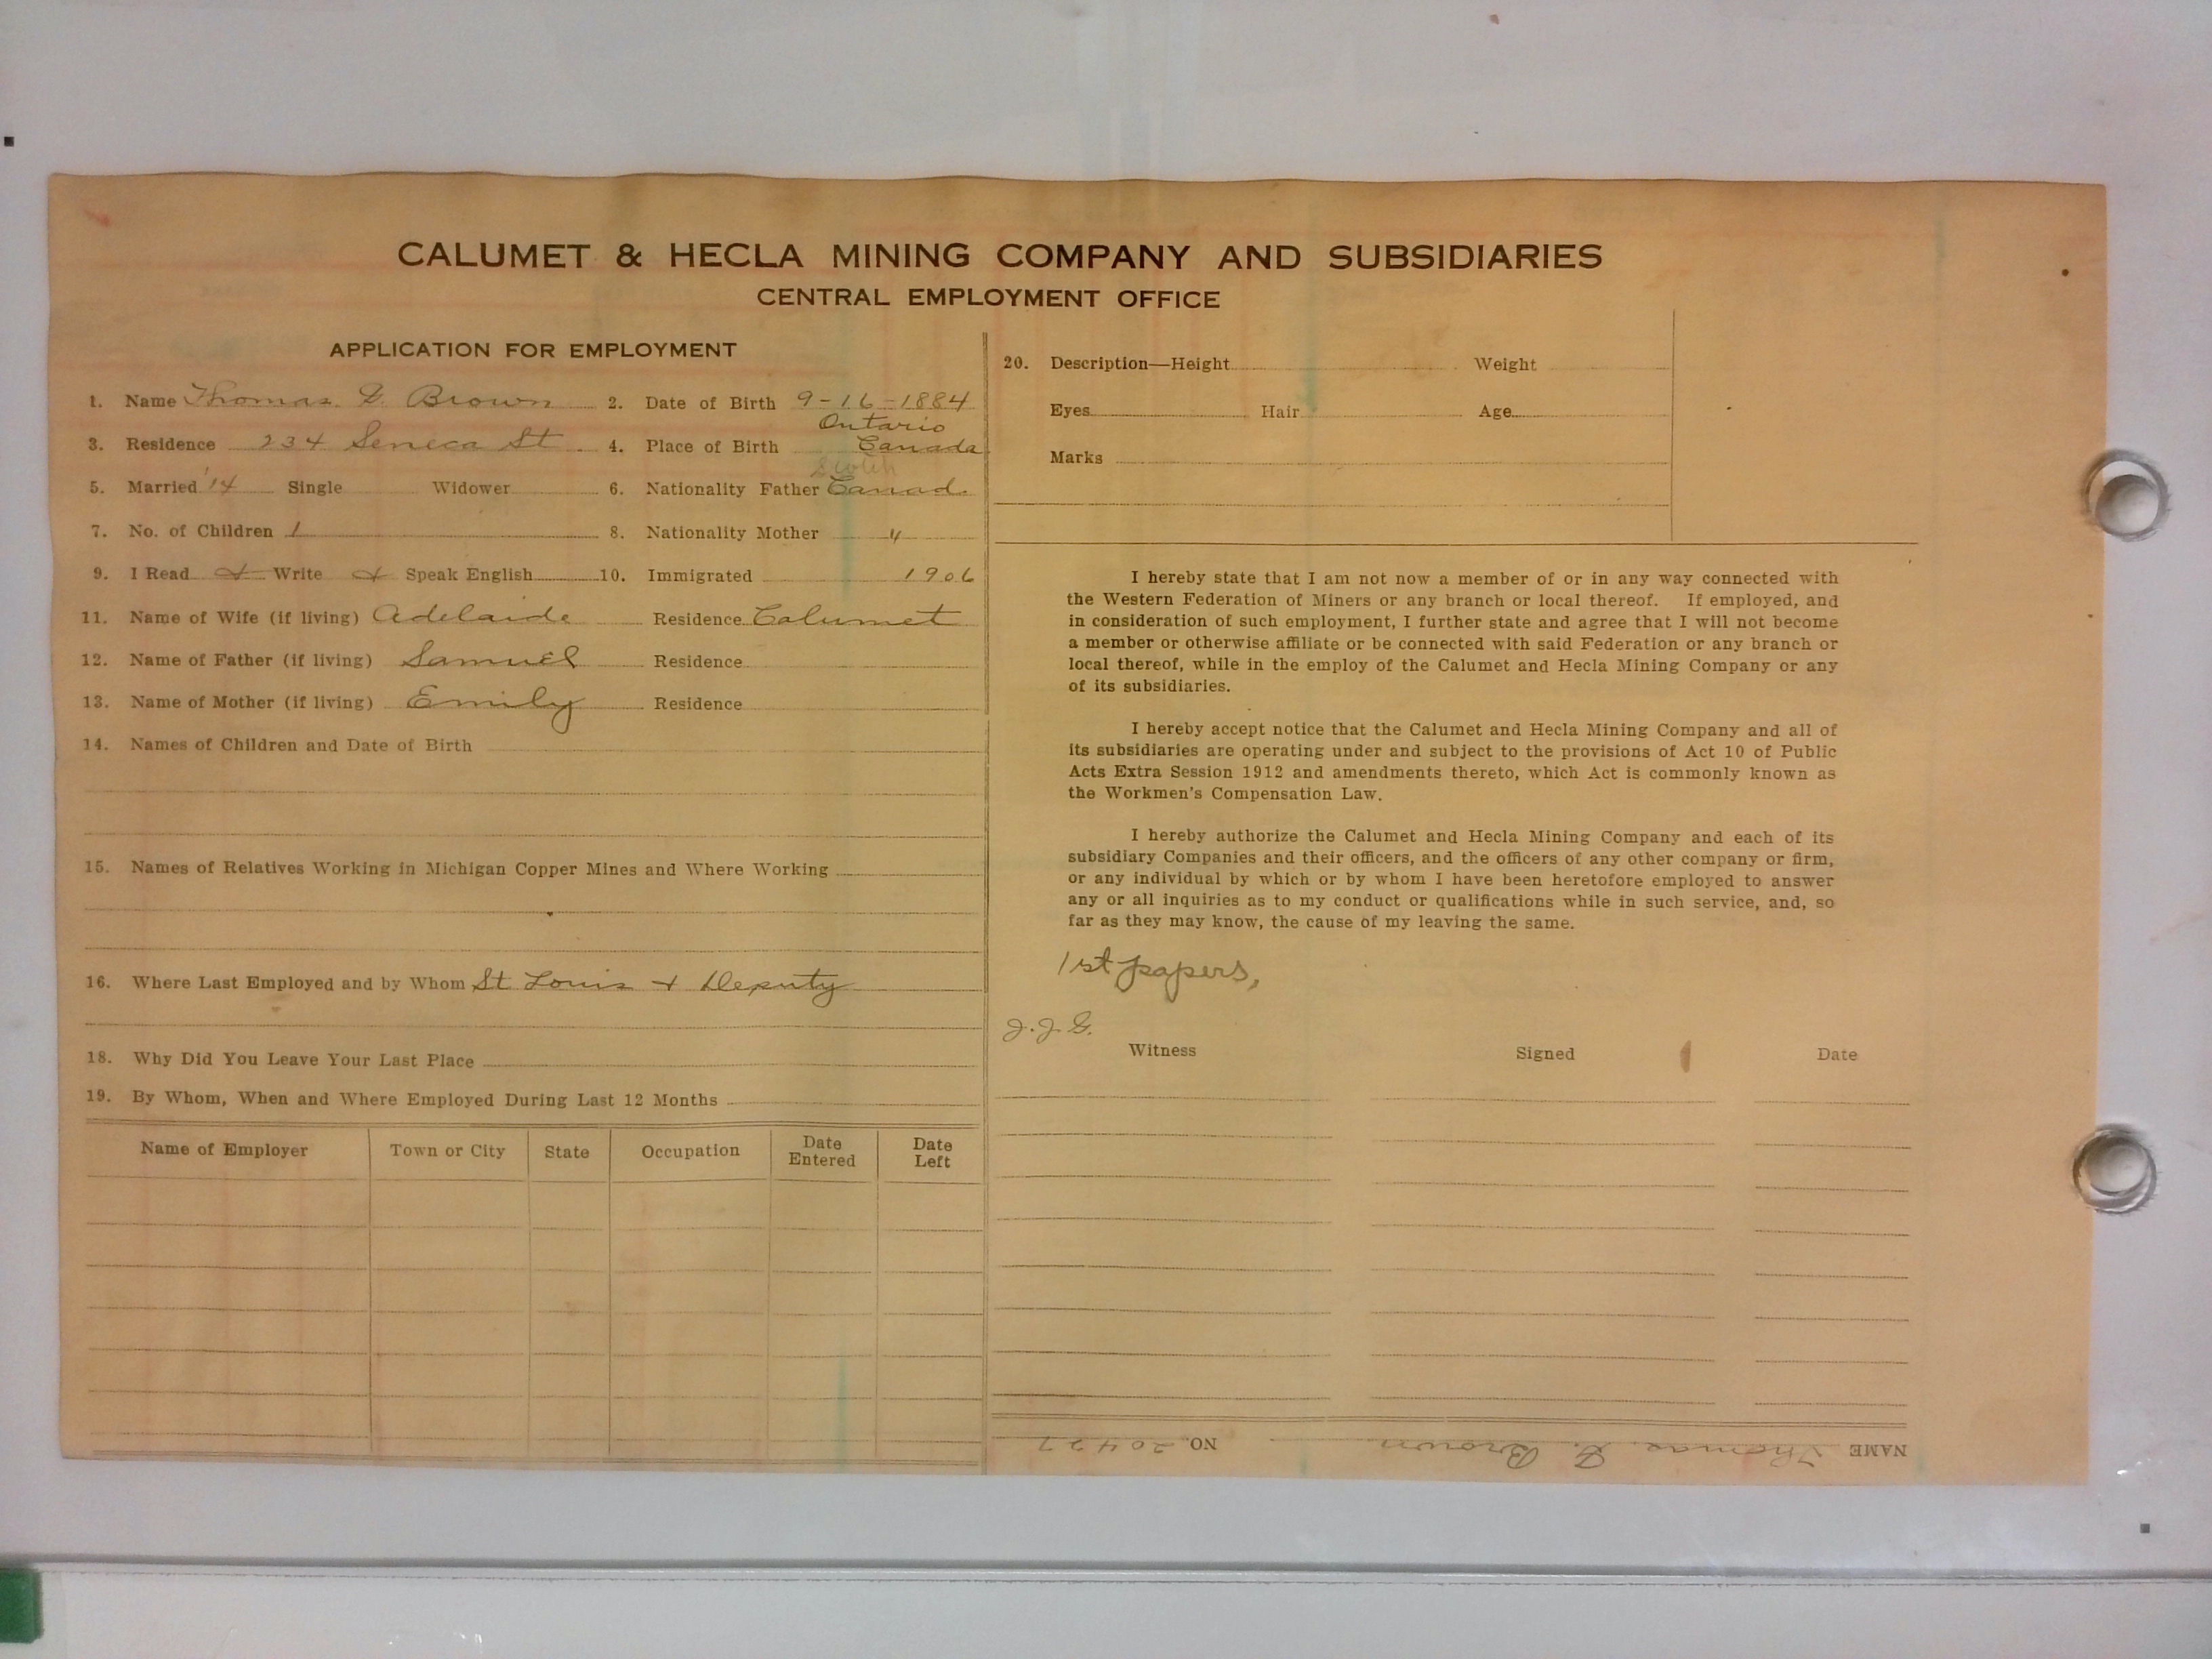 CALUMET & HECLA MINING COMPANY AND SUBSIDIARIES
CENTRAL EMPLOYMENT OFFICE
APPLICATION FOR EMPLOYMENT
1. Name Thomas G. Brown 2. Date of Birth 9-16-1884
3. Residence 234 Seneca St. 4. Place of Birth Ontario Canada
5. Married '14 Single Widower 6. Nationality Father Scotch Canad.
7. No. of Children 1 8. Nationality Mother "
9. I Read & Write & Speak English 10. Immigrated 1906
11. Name of Wife (if living) Adelaide Residence Calumet
12. Name of Father (if living) Samuel Residence
13. Name of Mother (if living) Emily Residence
14. Names of Children and Date of Birth
15. Names of Relatives Working in Michigan Copper Mines and Where Working
16. Where Last Employed and by Whom St Louis & Deputy
18. Why Did You Leave Your Last Place
19. By Whom, When and Where Employed During Last 12 Months
Name of Employer Town or City State Occupation Date Entered Date Left
20. Description—Height Weight
Eyes Hair Age
Marks
I hereby state that I am not now a member of or in any way connected with
the Western Federation of Miners or any branch or local thereof. If employed, and
in consideration of such employment, I further state and agree that I will not become
a member or otherwise affiliate or be connected with said Federation or any branch or
local thereof, while in the employ of the Calumet and Hecla Mining Company or any
of its subsidiaries.
I hereby accept notice that the Calumet and Hecla Mining Company and all of
its subsidiaries are operating under and subject to the provisions of Act 10 of Public
Acts Extra Session 1912 and amendments thereto, which Act is commonly known as
the Workmen's Compensation Law.
I hereby authorize the Calumet and Hecla Mining Company and each of its
subsidiary Companies and their officers, and the officers of any other company or firm,
or any individual by which or by whom I have been heretofore employed to answer
any or all inquiries as to my conduct or qualifications while in such service, and, so
far as they may know, the cause of my leaving the same.
1st papers,
J.J.G.
Witness Signed Date
NAME Thomas G. Brown NO. 20427